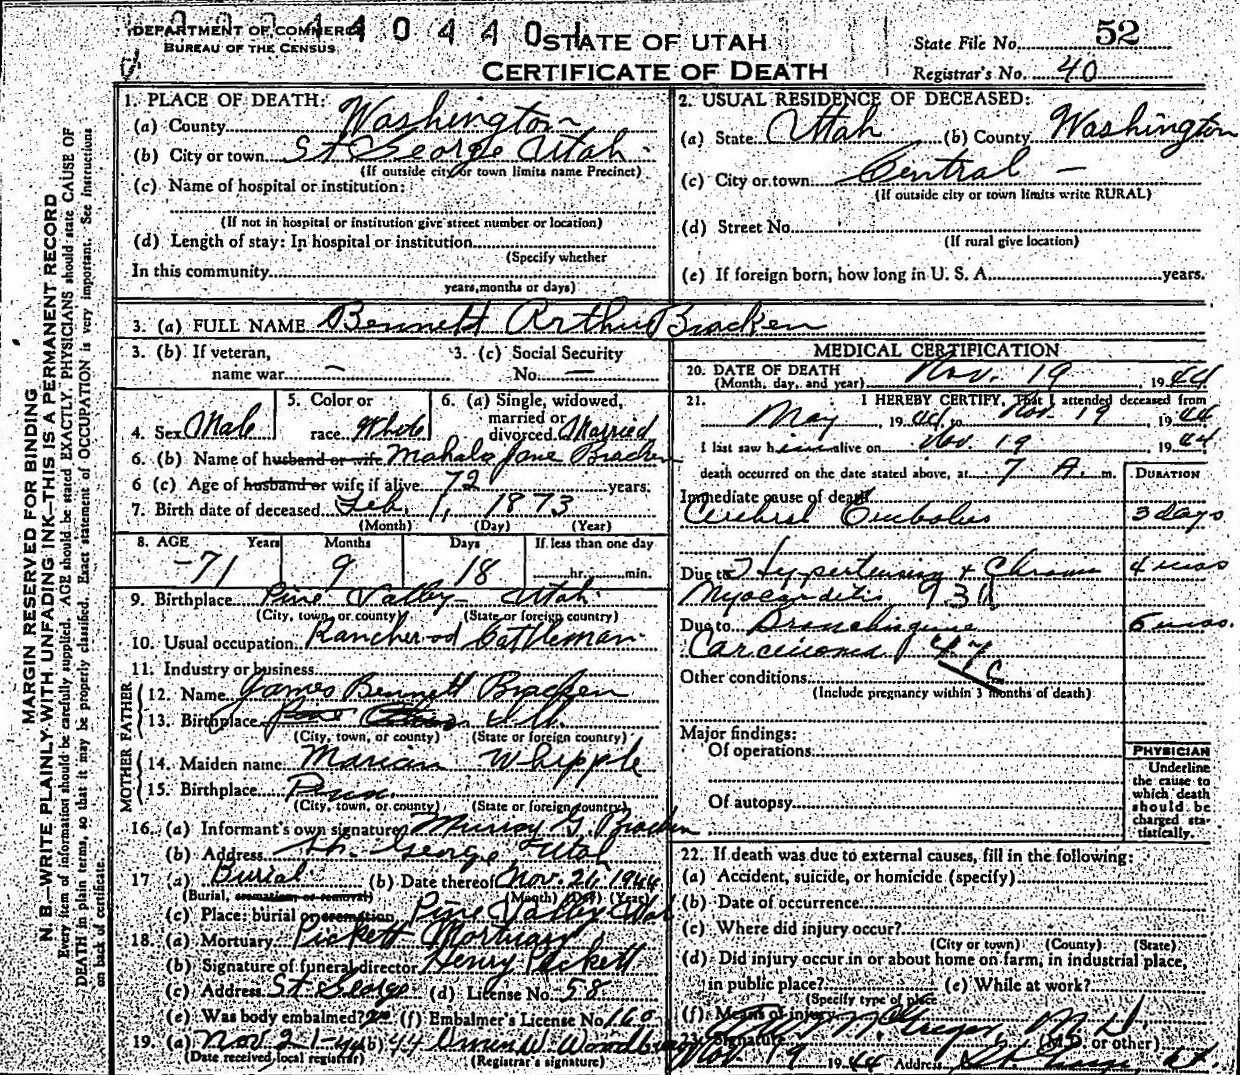 DEPARTMENT OF COMMERCE
BUREAU OF THE CENSUS
4 0 4 4 0 1
STATE OF UTAH
CERTIFICATE OF DEATH
State File No. 52
Registrar's No. 40
MARGIN RESERVED FOR BINDING
N. B.—WRITE PLAINLY WITH UNFADING INK—THIS IS A PERMANENT RECORD
Every item of information should be carefully supplied. AGE should be stated EXACTLY. PHYSICIANS should state CAUSE OF
DEATH in plain terms, so that it may be properly classified. Exact statement of OCCUPATION is very important. See instructions
on back of certificate.
1. PLACE OF DEATH:
(a) County Washington
(b) City or town St George Utah
(If outside city or town limits name Precinct)
(c) Name of hospital or institution:
(If not in hospital or institution give street number or location)
(d) Length of stay: In hospital or institution
(Specify whether
In this community
years, months or days)
2. USUAL RESIDENCE OF DECEASED:
(a) State Utah (b) County Washington
(c) City or town Central —
(If outside city or town limits write RURAL)
(d) Street No.
(If rural give location)
(e) If foreign born, how long in U. S. A. years.
3. (a) FULL NAME Bennett Arthur Bracken
3. (b) If veteran,
name war —
3. (c) Social Security
No. —
4. Sex Male
5. Color or
race White
6. (a) Single, widowed,
married or
divorced Married
6. (b) Name of husband or wife Mahala Jane Bracken
6 (c) Age of husband or wife if alive 72 years.
7. Birth date of deceased Feb. 1, 1873
(Month) (Day) (Year)
8. AGE Years Months Days If less than one day
71 9 18 hr. min.
9. Birthplace Pine Valley Utah
(City, town, or county) (State or foreign country)
10. Usual occupation Rancher Cattleman
11. Industry or business
FATHER
12. Name James Bennett Bracken
13. Birthplace
(City, town, or county) (State or foreign country)
MOTHER
14. Maiden name Marian Whipple
15. Birthplace Penn.
(City, town, or county) (State or foreign country)
16. (a) Informant's own signature Murray G. Bracken
(b) Address St. George Utah
17 (a) Burial (b) Date thereof Nov. 21, 1944
(Burial, cremation or removal) (Month) (Day) (Year)
(c) Place: burial or cremation Pine Valley Utah
18. (a) Mortuary Pickett Mortuary
(b) Signature of funeral director Henry Pickett
(c) Address St. George (d) License No. 58
(e) Was body embalmed? (f) Embalmer's License No. 160
19. (a) Nov. 21-44 (b)
(Date received local registrar) (Registrar's signature)
MEDICAL CERTIFICATION
20. DATE OF DEATH
(Month, day, and year) Nov. 19, 1944
21. I HEREBY CERTIFY, That I attended deceased from
May, 1944, to Nov. 19, 1944
I last saw him alive on Nov. 19 1944
death occurred on the date stated above, at 7 A. m.
DURATION
Immediate cause of death
Cerebral Embolus 3 days
Due to Hypertension + Chronic 4 mos
Myocarditis 93d
Due to Bronchiogenic 6 mos.
Carcinoma 47c
Other conditions
(Include pregnancy within 3 months of death)
Major findings:
Of operations
Of autopsy
PHYSICIAN
Underline
the cause to
which death
should be
charged sta-
tistically.
22. If death was due to external causes, fill in the following:
(a) Accident, suicide, or homicide (specify)
(b) Date of occurrence
(c) Where did injury occur?
(City or town) (County) (State)
(d) Did injury occur in or about home on farm, in industrial place,
in public place? (e) While at work?
(Specify type of place
(f) Means of injury
23. Signature McGregor, M.D.
(M.D. or other)
Nov. 19 1944 Address St. George, Ut.